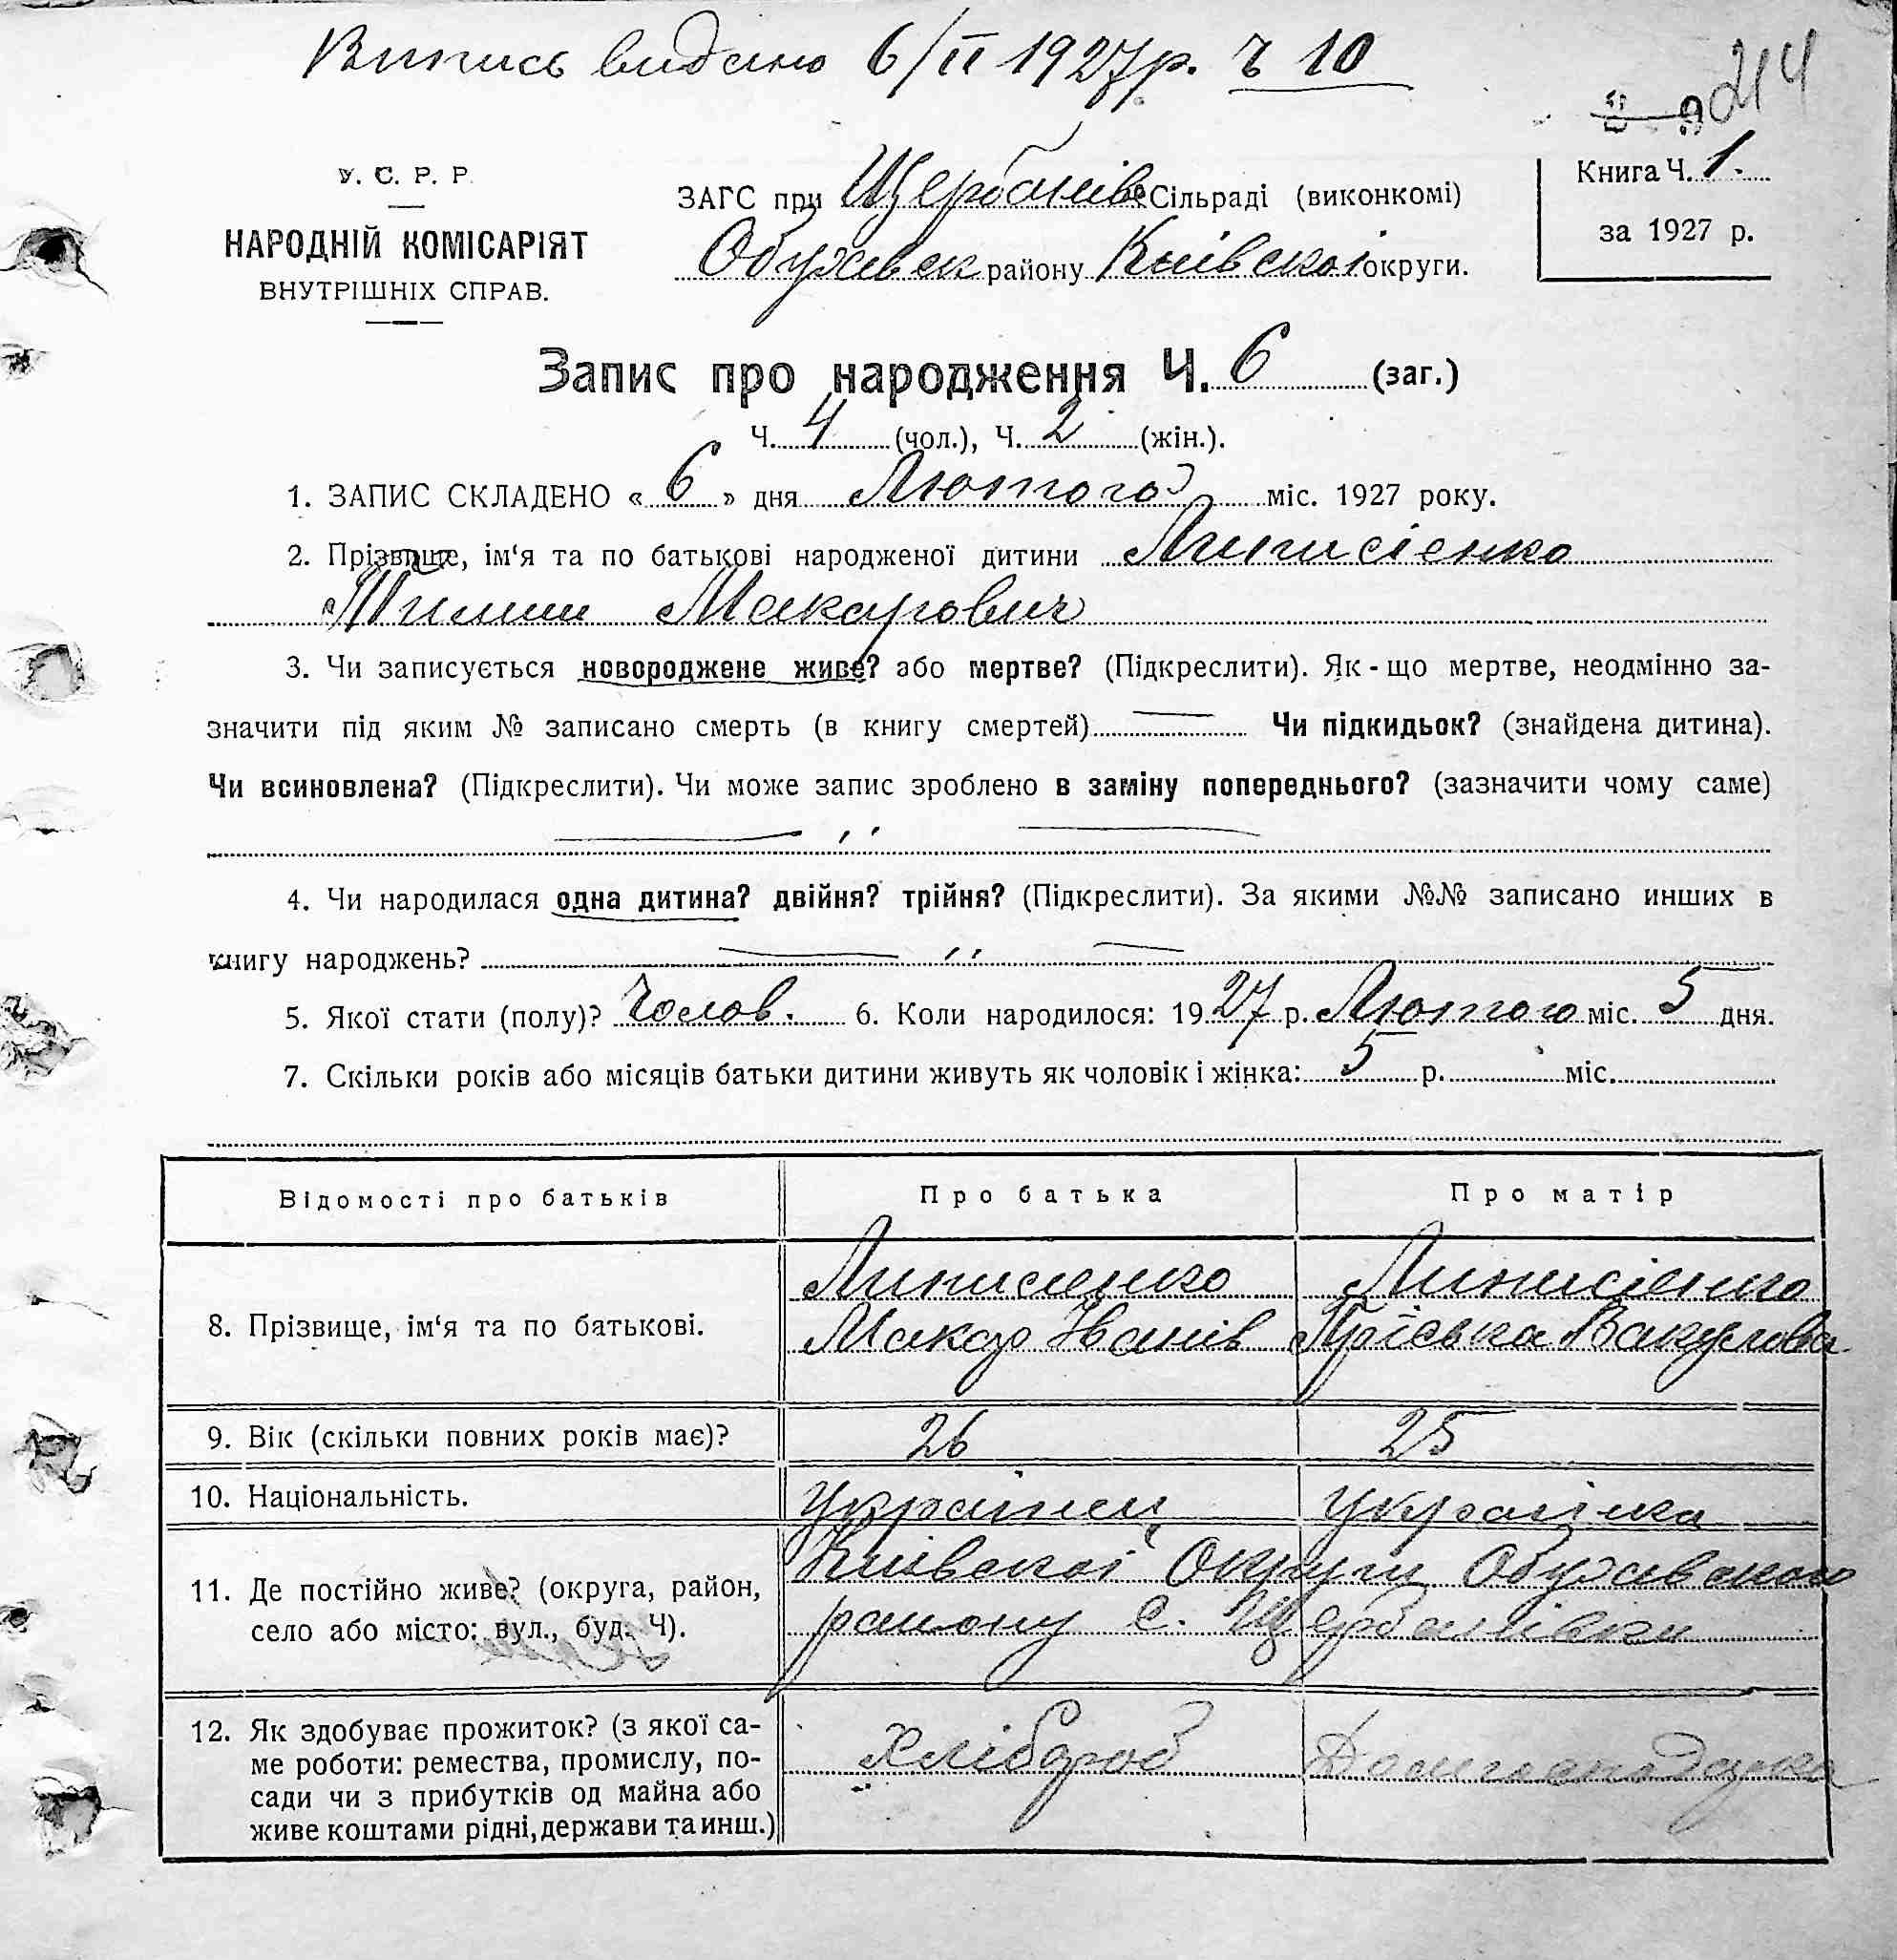 Випись видано 6/II 1927р. ч 10
214
У. С. Р. Р.
НАРОДНІЙ КОМІСАРІЯТ
ВНУТРІШНІХ СПРАВ.
ЗАГС при Щербанівс Сільраді (виконкомі)
Обухівськ району Київської округи.
Книга Ч. 1.
за 1927 р.
Запис про народження Ч. 6 (заг.)
Ч. 4 (чол.), Ч. 2 (жін.).
1. ЗАПИС СКЛАДЕНО « 6 » дня Лютого міс. 1927 року.
2. Прізвище, ім‘я та по батькові народженої дитини
Макарович
3. Чи записується новороджене живе? або мертве? (Підкреслити). Як-що мертве, неодмінно за-
значити під яким № записано смерть (в книгу смертей) Чи підкидьок? (знайдена дитина).
Чи всиновлена? (Підкреслити). Чи може запис зроблено в заміну попереднього? (зазначити чому саме)
4. Чи народилася одна дитина? двійня? трійня? (Підкреслити). За якими №№ записано инших в
книгу народжень?
5. Якої стати (полу)? Чолов. 6. Коли народилося: 1927 р. Лютого міс. 5 дня.
7. Скільки років або місяців батьки дитини живуть як чоловік і жінка: 5 р. міс.
Відомості про батьків
Про батька
Про матір
8. Прізвище, ім‘я та по батькові.
Макар Іванів
Пріська Вакулова
9. Вік (скільки повних років має)?
26
25
10. Національність.
Українец
Українка
11. Де постійно живе? (округа, район,
село або місто: вул., буд. Ч).
Київскої Округи Обухівского
району с. Щербанівки
12. Як здобуває прожиток? (з якої са-
ме роботи: ремества, промислу, по-
сади чи з прибутків од майна або
живе коштами рідні, держави та инш.)
Хлібороб
Домгосподарка